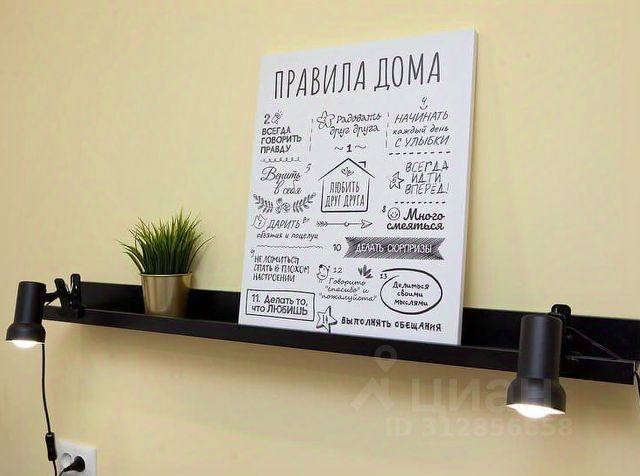 ПРАВИЛА ДОМА
2
ВСЕГДА
ГОВОРИТЬ
ПРАВДУ
3
Радовать
друг друга
4
НАЧИНАТЬ
каждый день
С УЛЫБКИ
~ 1 ~
ЛЮБИТЬ
ДРУГ ДРУГА
Верить 5
в себя
6
ВСЕГДА
ИДТИ
ВПЕРЕД!
7 ДАРИТЬ
объятия и поцелуи
8 Много
смеяться
9
НЕ ЛОЖИТЬСЯ
СПАТЬ в ПЛОХОМ
НАСТРОЕНИИ
10 ДЕЛАТЬ СЮРПРИЗЫ
11. Делать то,
что ЛЮБИШЬ
12
Говорить
"спасибо" и
"пожалуйста"
13
Делиться
своими
мыслями
14 ВЫПОЛНЯТЬ ОБЕЩАНИЯ
циан
ID 312856658